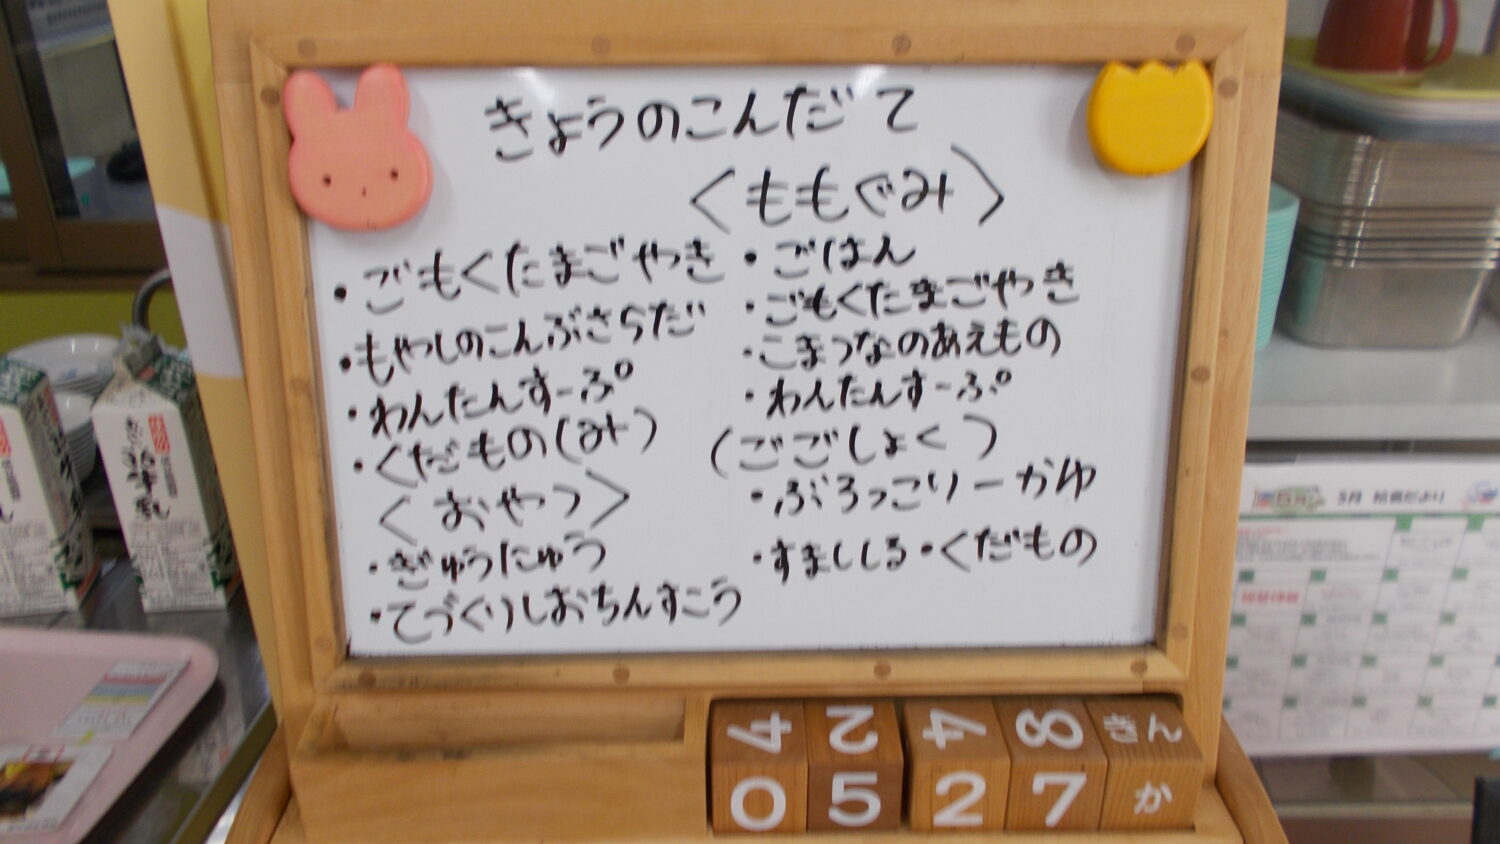 きょうのこんだて
・ごもくたまごやき
・もやしのこんぶさらだ
・わんたんすーぷ
・くだもの(みかん)
〈おやつ〉
・ぎゅうにゅう
・てづくりしおちんすこう
〈ももぐみ〉
・ごはん
・ごもくたまごやき
・こまつなのあえもの
・わんたんすーぷ
(ごごしょく)
・ぶろっこりーかゆ
・すまししる・くだもの
4 2 4 8 きん
0 5 2 7 か
5月 給食だより